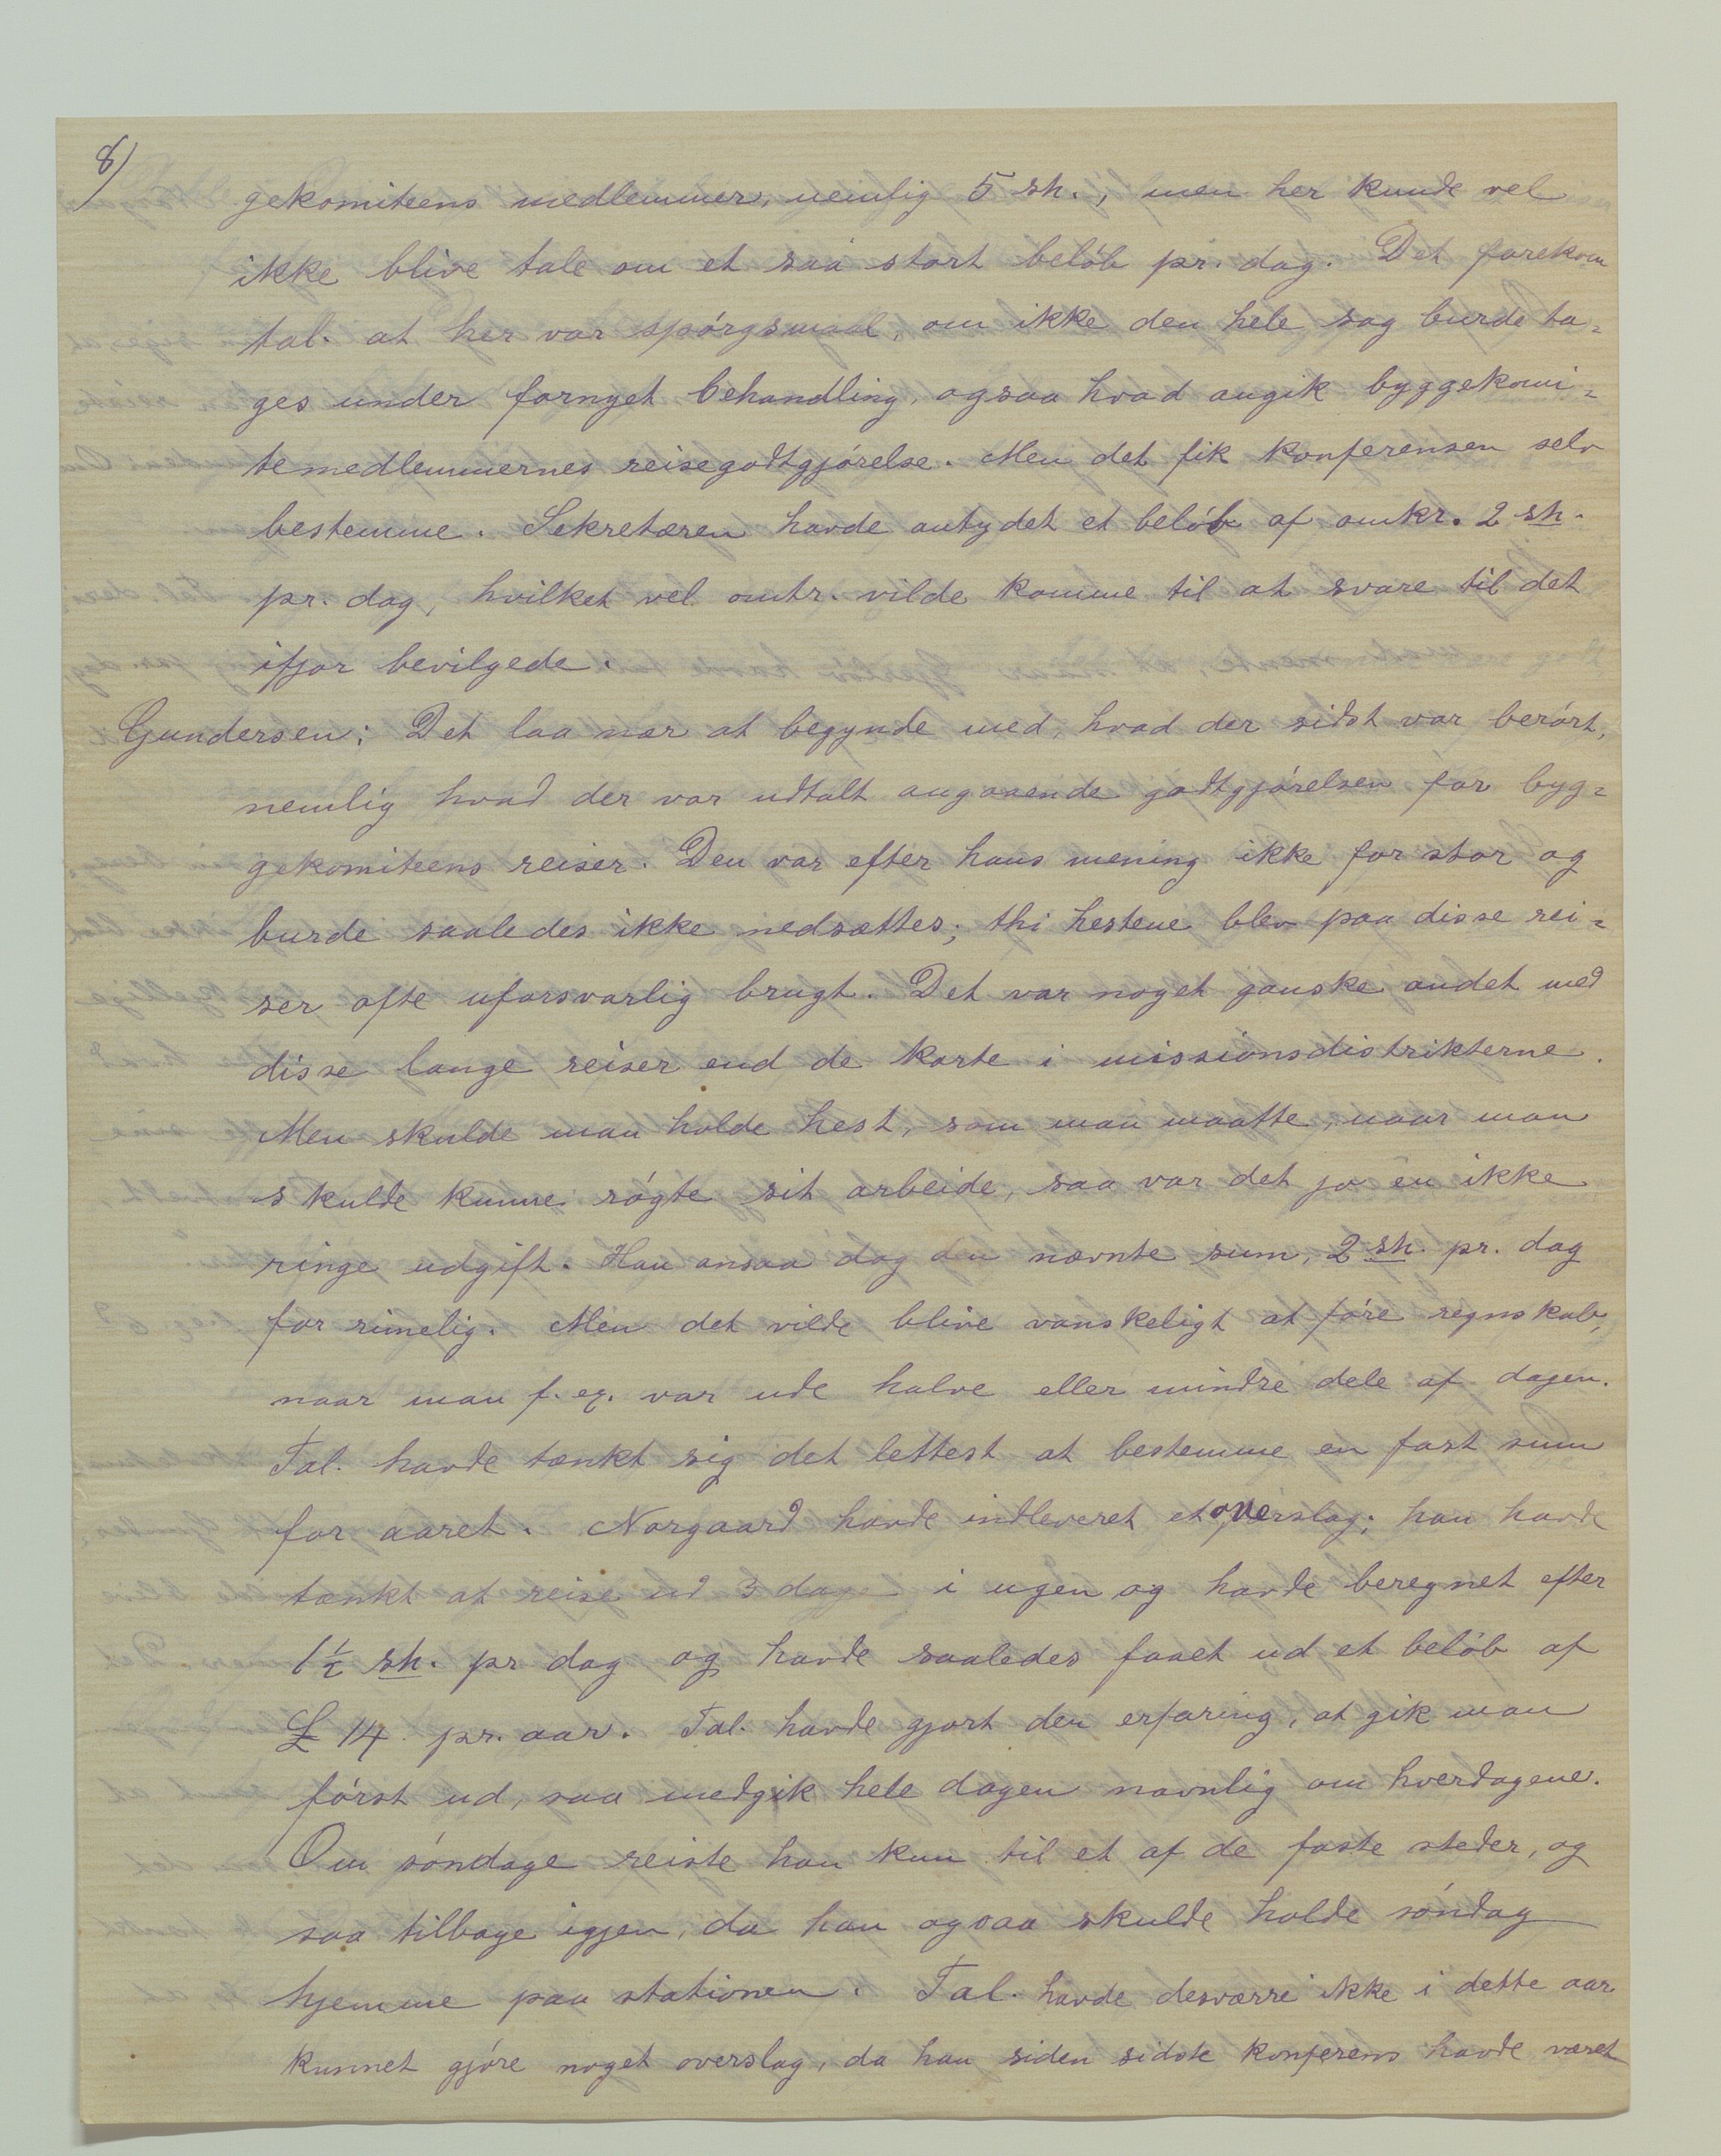 8)
gekomiteens medlemmer, nemlig 5 sh., men her kunde vel
ikke blive tale om et saa stort beløb pr. dag. Det forekom
tal. at her var spørgsmaal, om ikke den hele sag burde ta-
ges under fornyet behandling, ogsaa hvad angik byggekomi-
temedlemmernes reisegodtgjørelse. Men det fik konferensen selv
bestemme. Sekretæren havde antydet et beløb af omkr. 2 sh.
pr. dag, hvilket vel omtr. vilde komme til at svare til det
ifjor bevilgede.
Gundersen: Det laa nær at begynde med, hvad der sidst var berørt,
nemlig hvad der var udtalt angaaende godtgjørelsen for byg-
gekomiteens reiser. Den var efter hans mening ikke for stor og
burde saaledes ikke nedsættes; thi hestene blev paa disse rei-
ser ofte uforsvarlig brugt. Det var noget ganske andet med
disse lange reiser end de korte i missionsdistrikterne.
Men skulde man holde hest, som man maatte, naar man
skulde kunne røgte sit arbeide, saa var det jo en ikke
ringe udgift. Han ansaa dog den nævnte sum, 2 sh. pr. dag
for rimelig. Men det vilde blive vanskeligt at føre regnskab,
naar man f. ex. var ude halve eller mindre dele af dagen.
Tal. havde tænkt sig det lettest at bestemme en fast sum
for aaret. Norgaard havde indleveret et overslag; han havde
tænkt at reise ud 3 dage i ugen og havde beregnet efter
1½ sh. pr dag og havde saaledes faaet ud et beløb af
£ 14 pr. aar. Tal. havde gjort den erfaring, at gik man
først ud, saa medgik hele dagen navnlig om hverdagene.
Om søndage reiste han kun til et af de faste steder, og
saa tilbage igjen, da han ogsaa skulde holde søndag
hjemme paa stationen. Tal. havde desværre ikke i dette aar
kunnet gjøre noget overslag, da han siden sidste konferens havde været